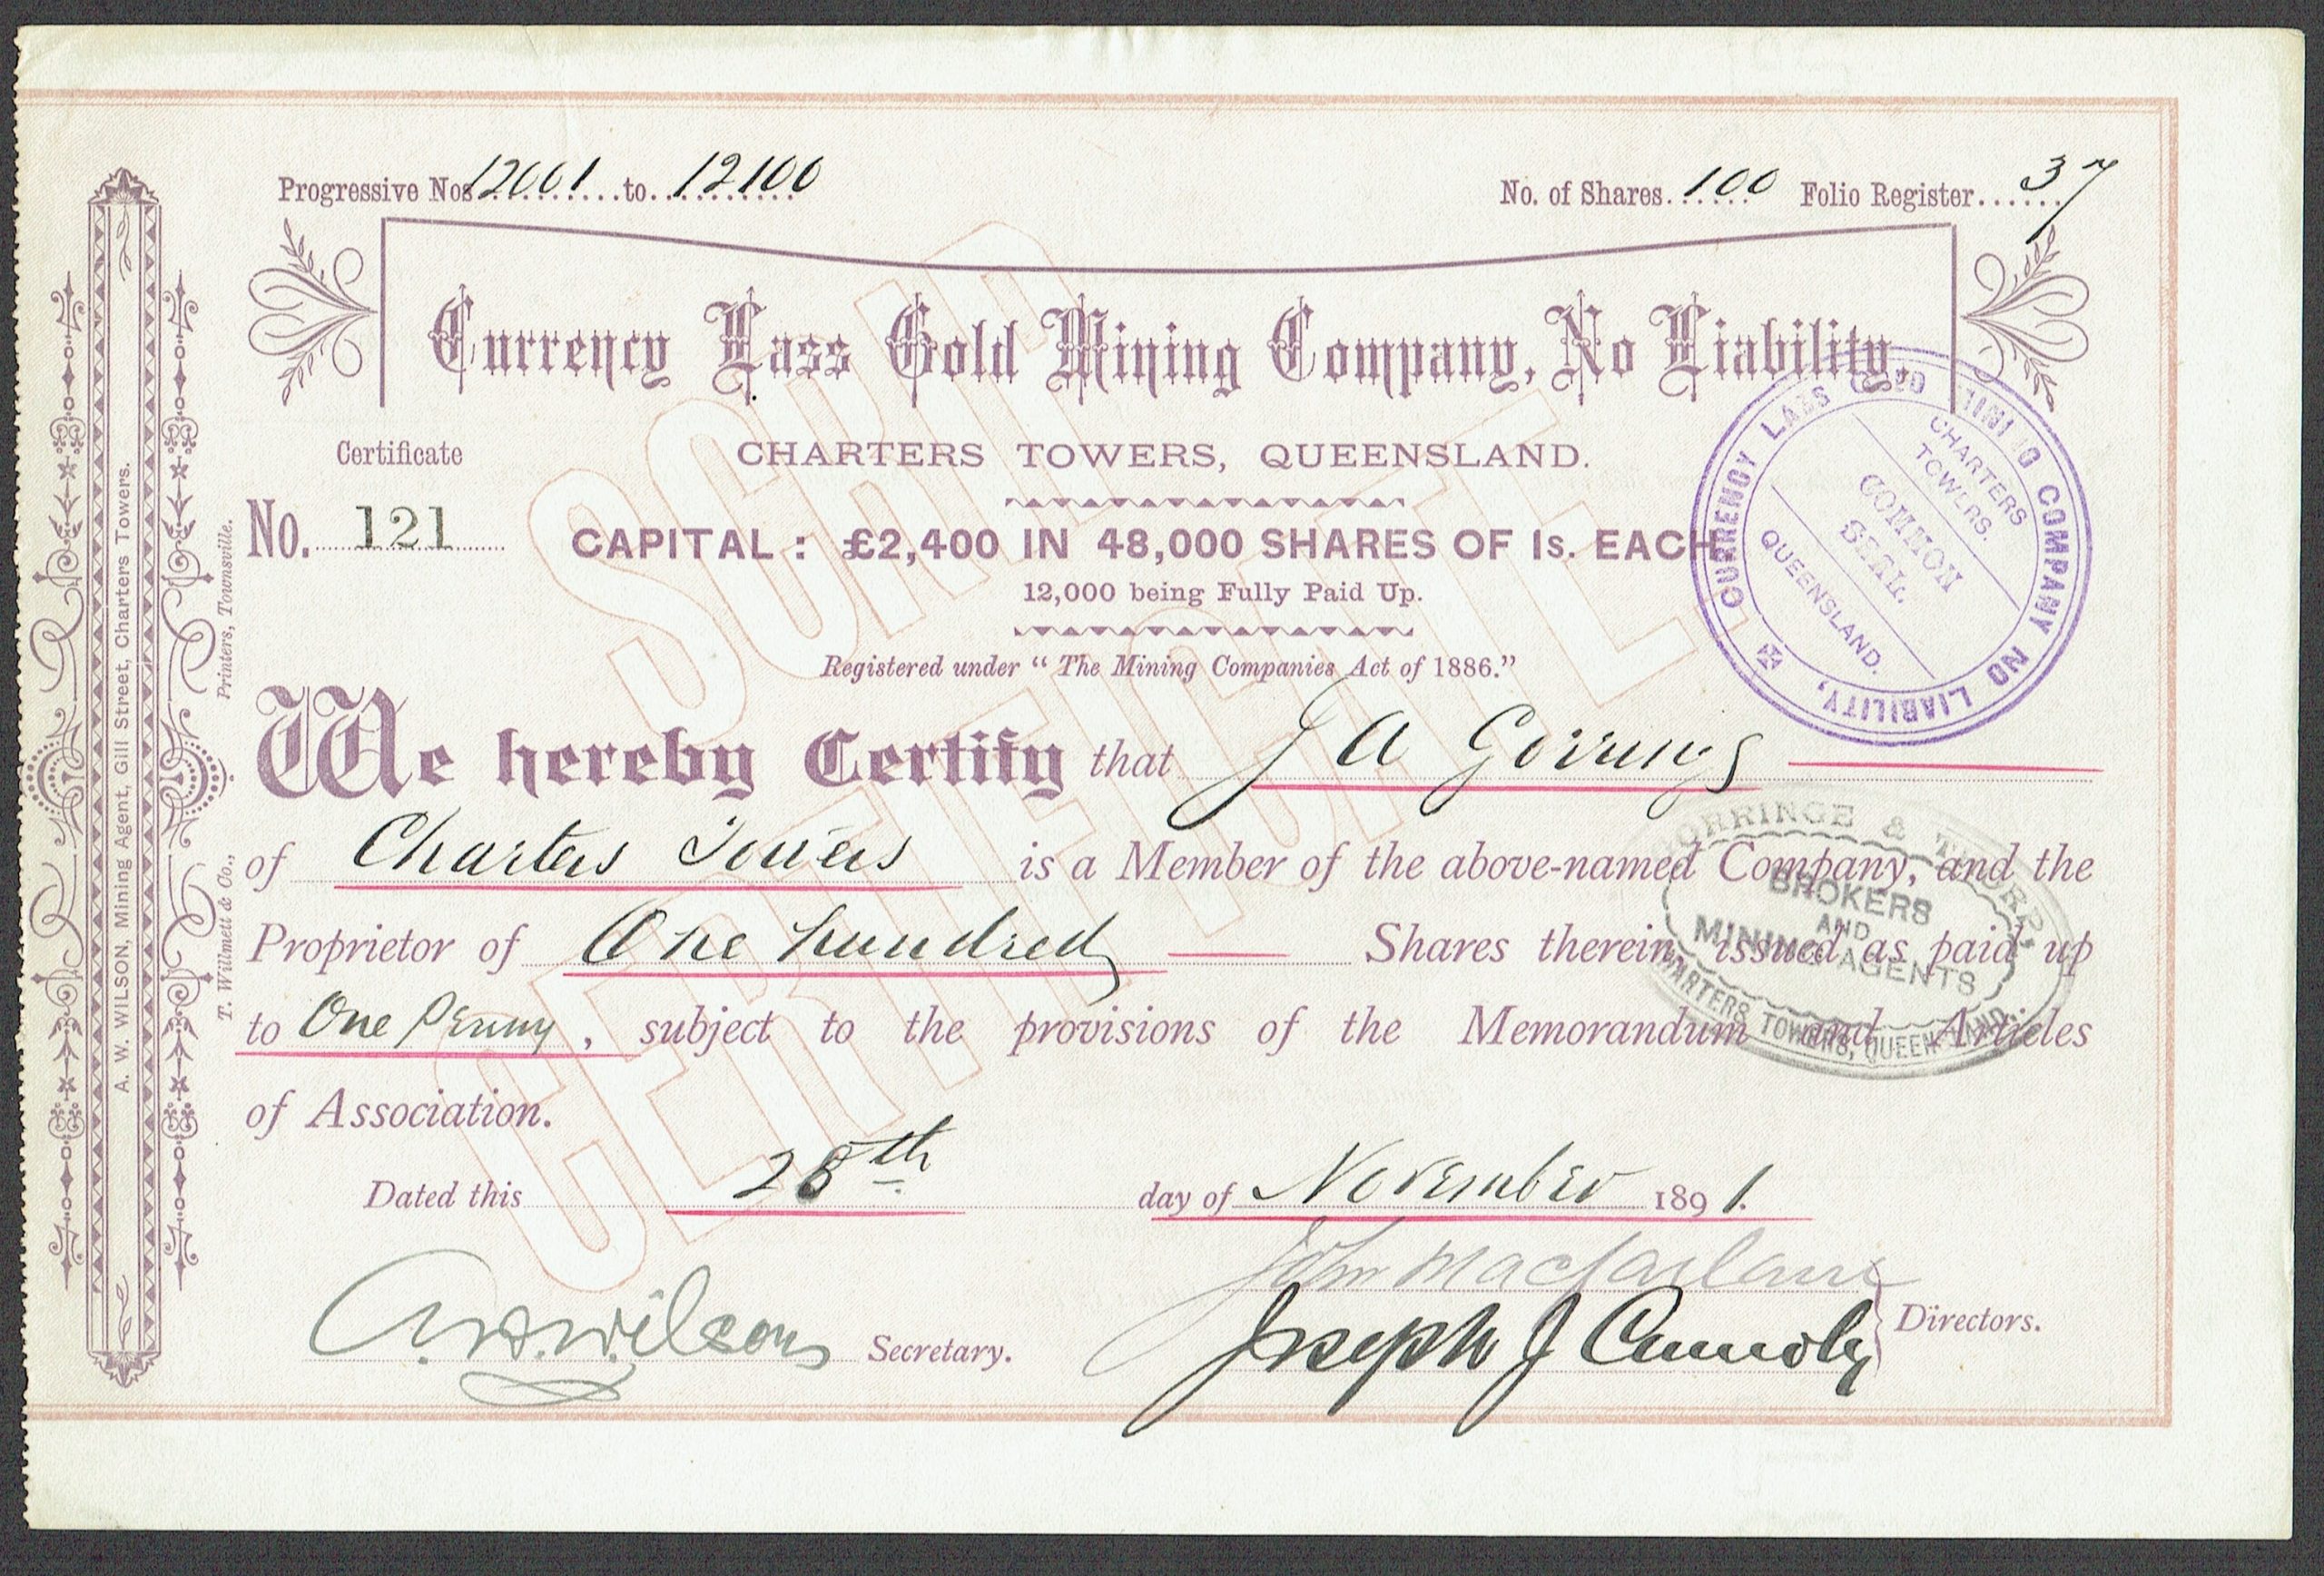 Progressive Nos 12001 to 12100 No. of Shares 100 Folio Register 37
Currency Lass Gold Mining Company, No Liability,
Certificate
CHARTERS TOWERS, QUEENSLAND.
No. 121
CAPITAL : £2,400 IN 48,000 SHARES OF 1s. EACH
12,000 being Fully Paid Up.
Registered under "The Mining Companies Act of 1886."
We hereby Certify that J A Gorringe
of Charters Towers is a Member of the above-named Company, and the
Proprietor of One hundred Shares therein, issued as paid up
to One Penny, subject to the provisions of the Memorandum and Articles
of Association.
Dated this 28th day of November 1891.
John Macfarlane
A. W. Wilson Secretary.
Joseph J Connoly
Directors.
SCRIP
CERTIFICATE.
CURRENCY LASS GOLD MINING COMPANY NO LIABILITY,
CHARTERS
TOWERS.
COMMON
SEAL.
QUEENSLAND.
GORRINGE & THORP,
BROKERS
AND
MINING AGENTS
CHARTERS TOWERS, QUEENSLAND.
A. W. WILSON, Mining Agent, Gill Street, Charters Towers.
T. Willmett & Co., Printers, Townsville.